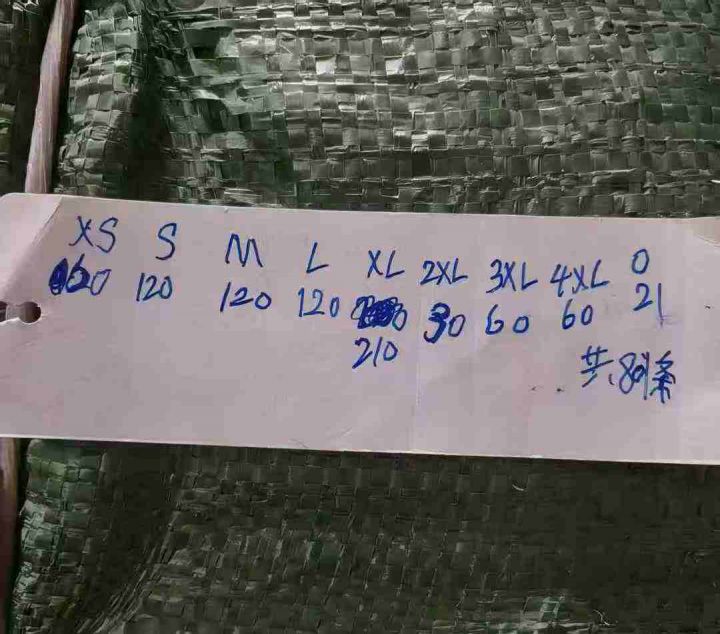 XS S M L XL 2XL 3XL 4XL 0
60 120 120 120 30 60 60 21
210
共801条